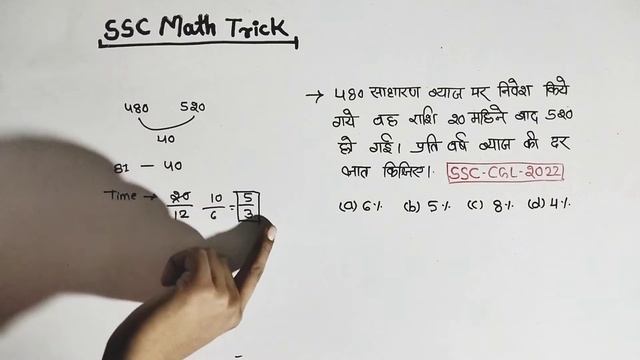 SSC Math Trick
480 520
40
81 — 40
Time → 20/12 10/6 = 5/3
→ 480 साधारण ब्याज पर निवेश किये
गये वह राशि 20 महिने बाद 520
हो गई। प्रति वर्ष ब्याज की दर
ज्ञात किजिए। SSC-CGL-2022
(a) 6% (b) 5% (c) 8% (d) 4%